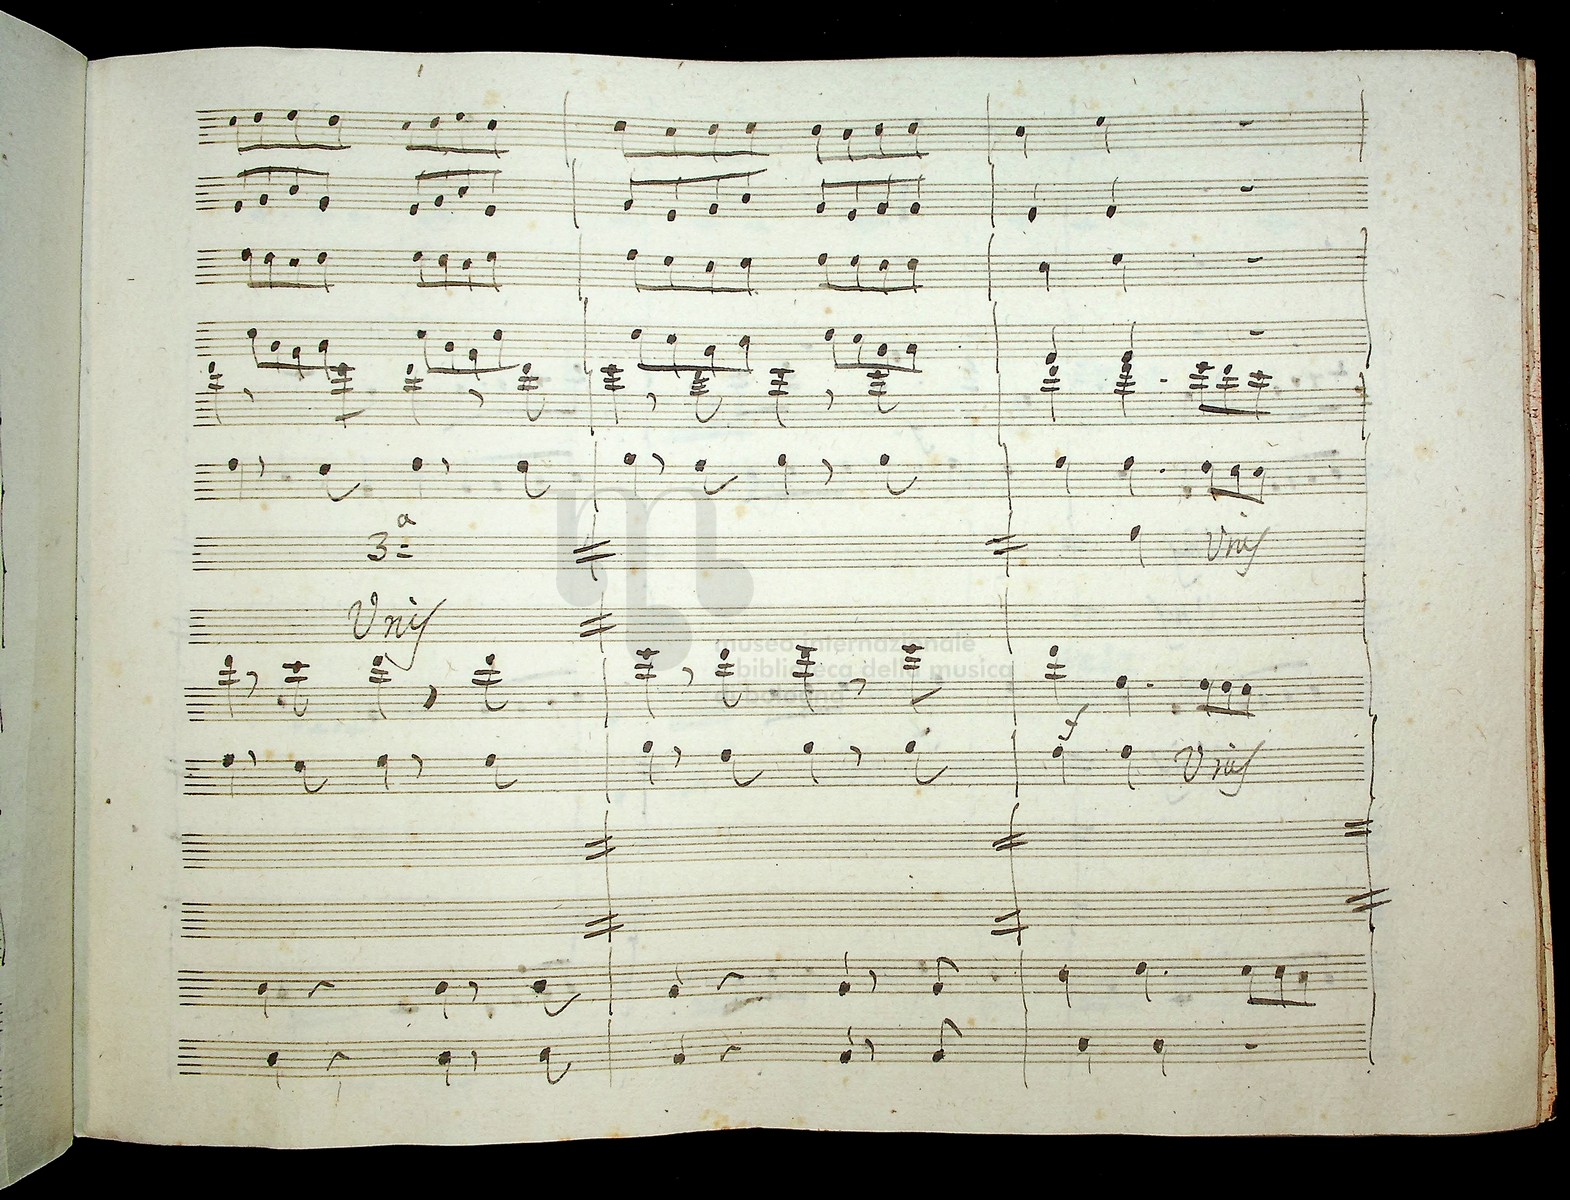 3ª
Unis
Unis
f
Unis
museo internazionale
e biblioteca della musica
di bologna